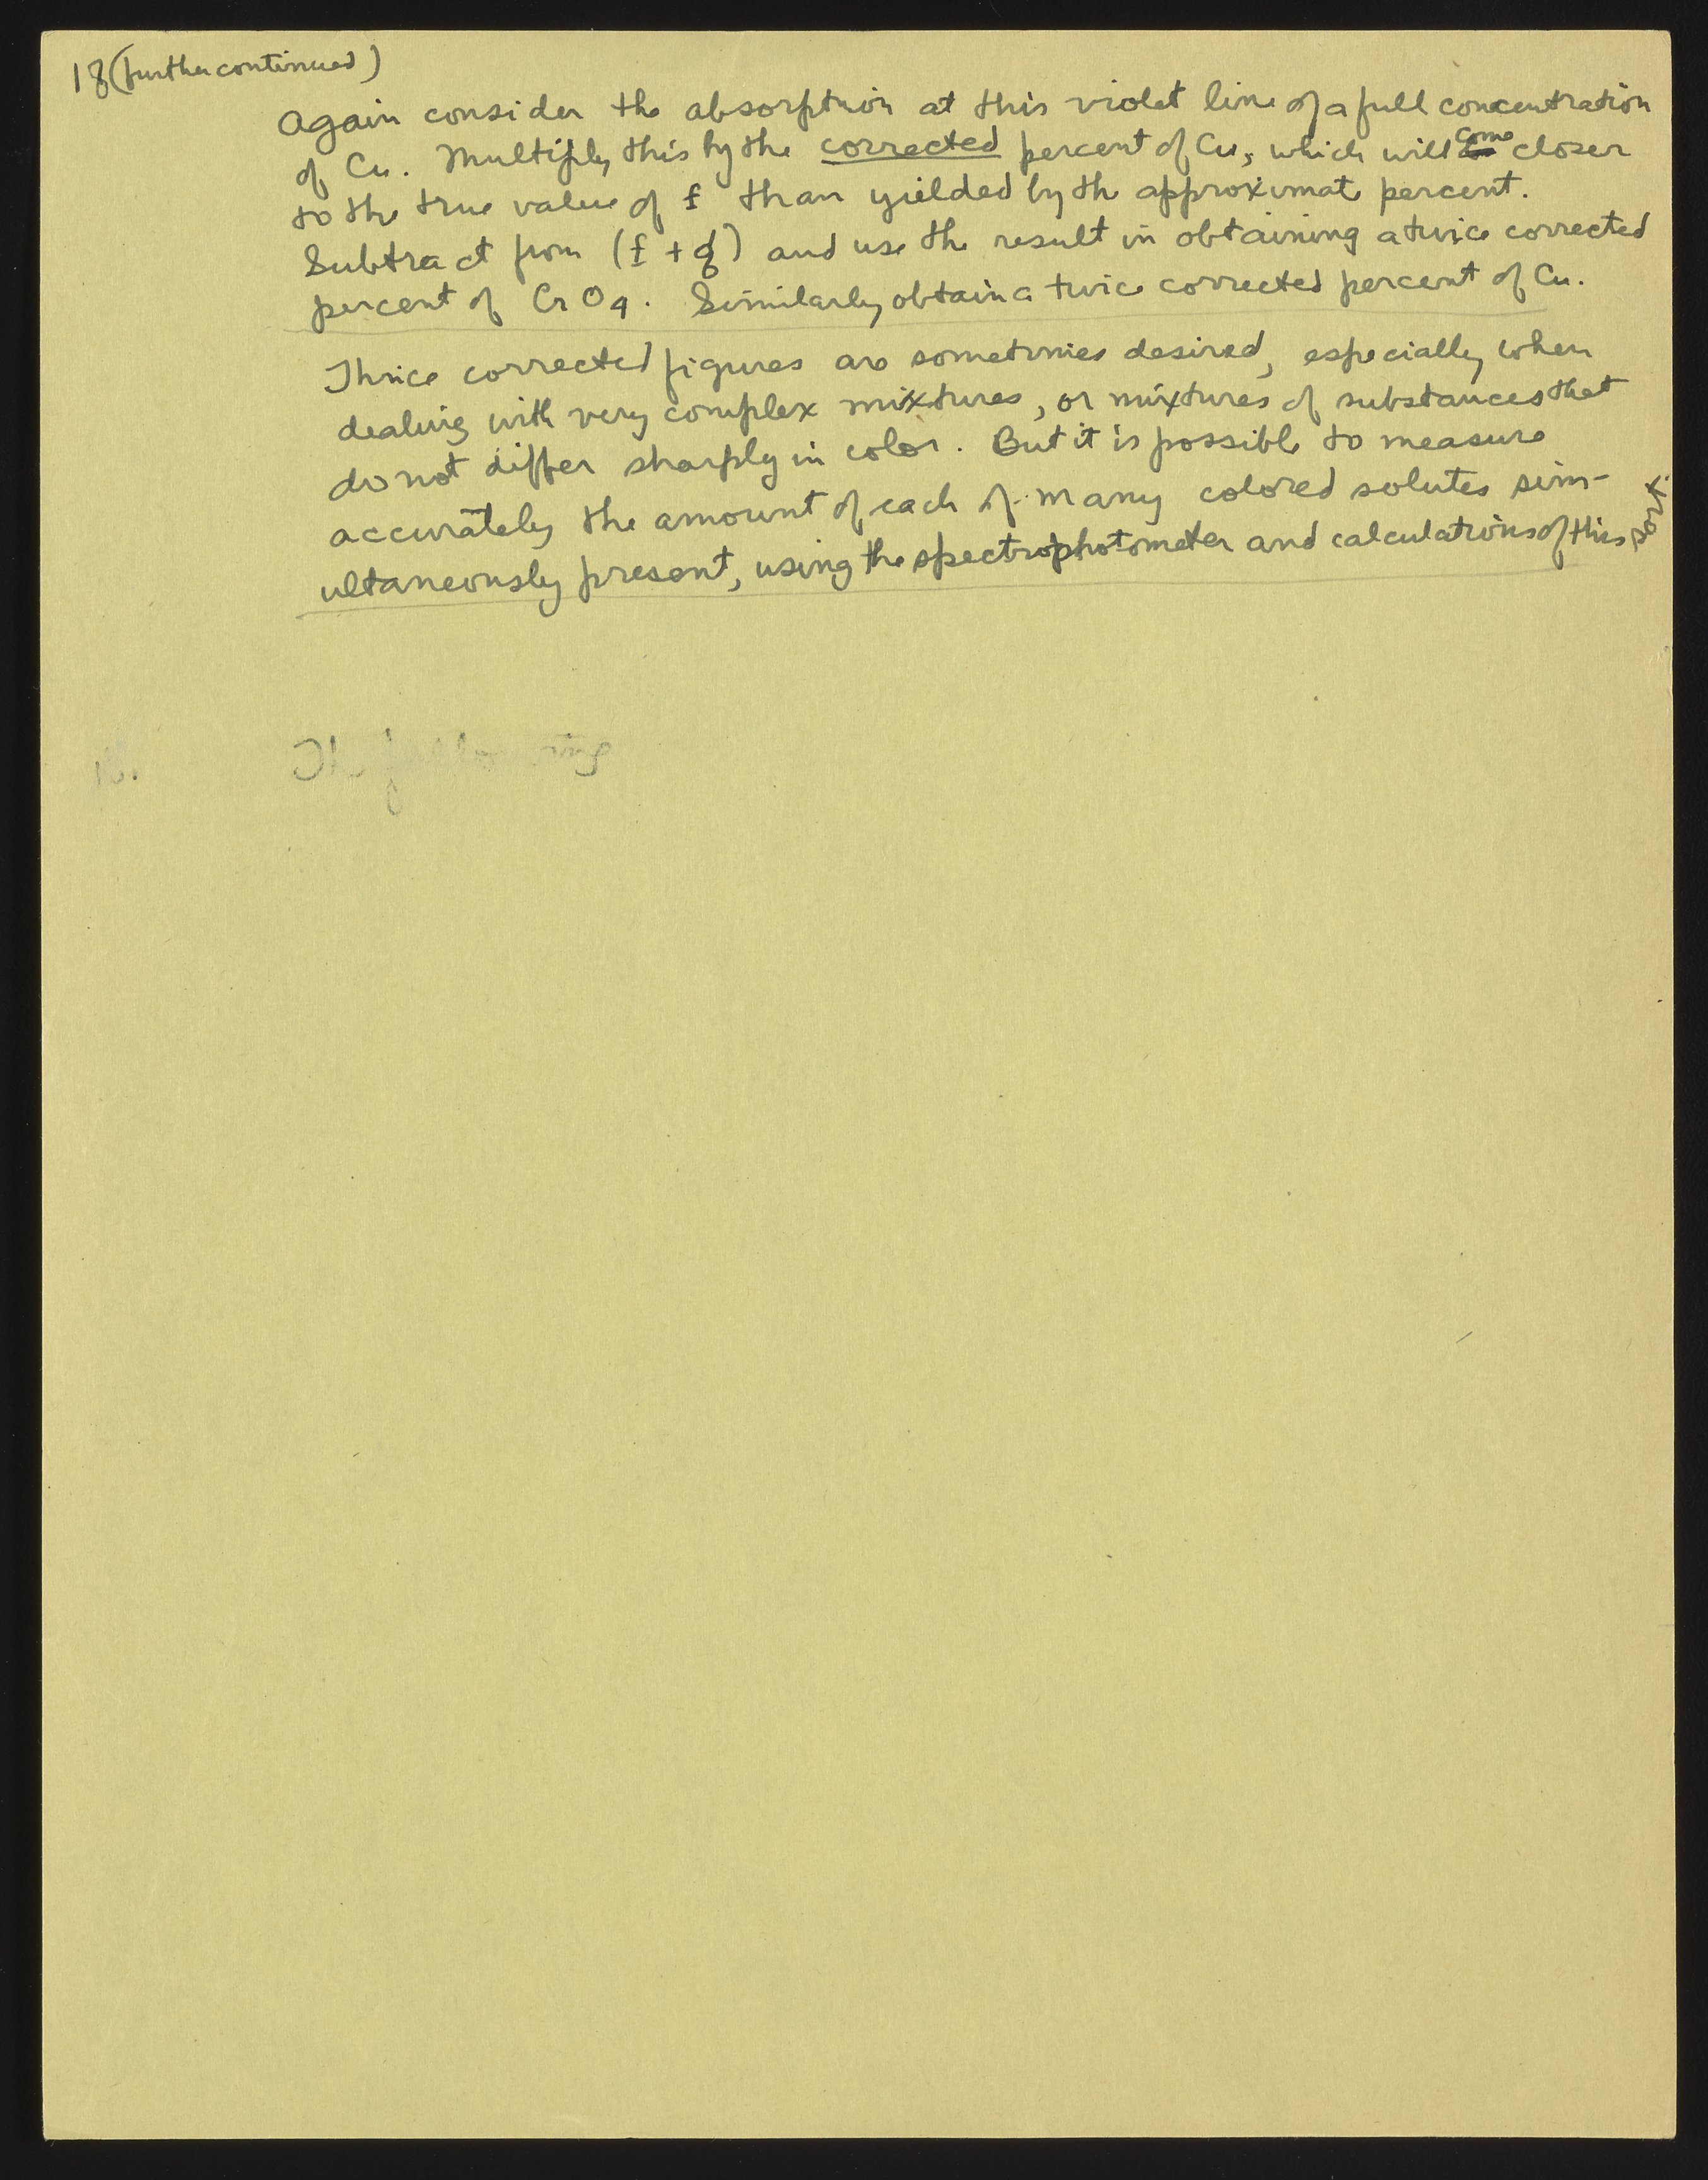 18 (further continued)
Again consider the absorption at this violet line of a full concentration
of Cu. Multiply this by the corrected percent of Cu, which will come closer
to the true value of f than yielded by th approximat percent.
Subtract from (f + g) and use the result in obtaining a twice corrected
percent of CrO4. Similarly obtain a twice corrected percent of Cu.
Thrice corrected figures are sometimes desired, especially when
dealing with very complex mixtures, or mixtures of substances that
do not differ sharply in color. But it is possible to measure
accurately the amount of each of many colored solutes sim-
ultaneously present, using the spectrophotometer and calculations of this sort.
The following